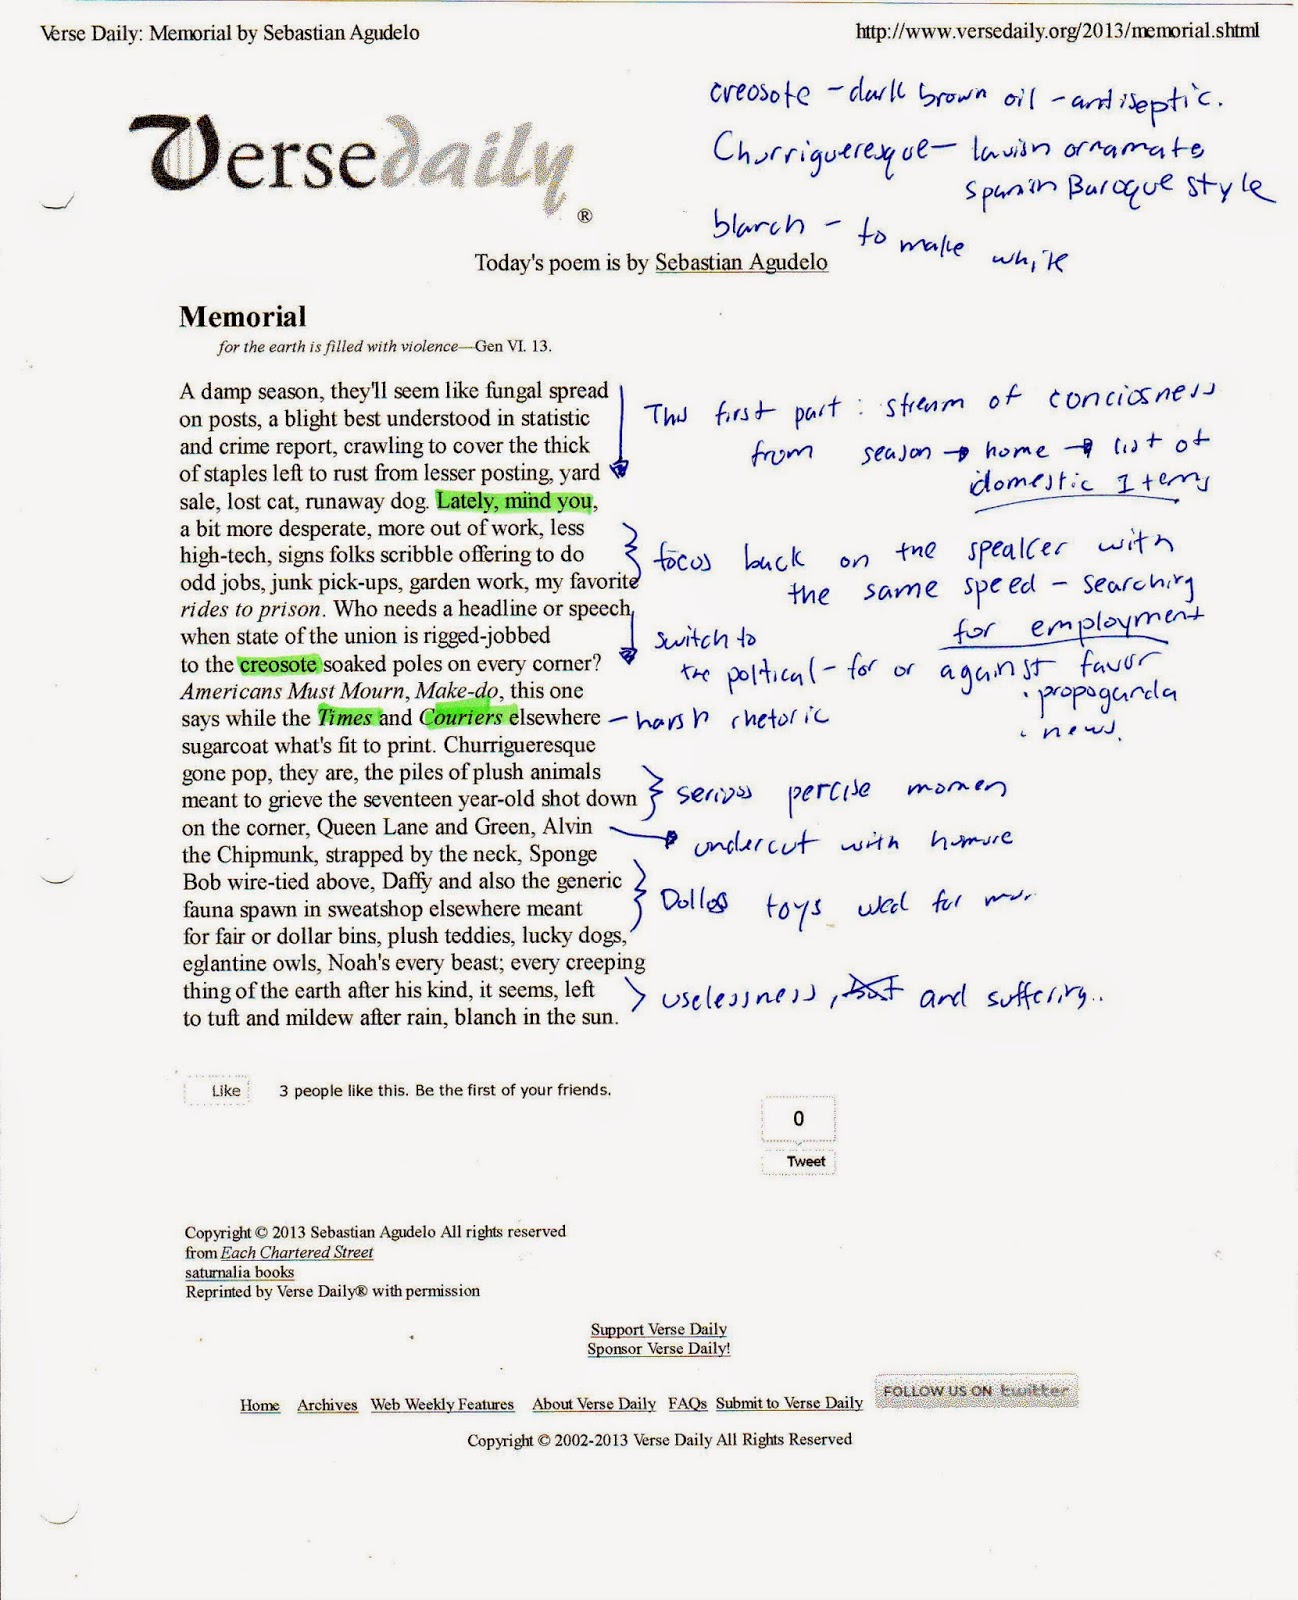 Verse Daily: Memorial by Sebastian Agudelo
http://www.versedaily.org/2013/memorial.shtml
creosote - dark brown oil - antiseptic.
Churrigueresque - lavish ornamate
Spanish Baroque style
blanch - to make white
Verse daily ®
Today's poem is by Sebastian Agudelo
Memorial
for the earth is filled with violence—Gen VI. 13.
A damp season, they'll seem like fungal spread
on posts, a blight best understood in statistic
and crime report, crawling to cover the thick
of staples left to rust from lesser posting, yard
sale, lost cat, runaway dog. Lately, mind you,
a bit more desperate, more out of work, less
high-tech, signs folks scribble offering to do
odd jobs, junk pick-ups, garden work, my favorite
rides to prison. Who needs a headline or speech,
when state of the union is rigged-jobbed
to the creosote soaked poles on every corner?
Americans Must Mourn, Make-do, this one
says while the Times and Couriers elsewhere
sugarcoat what's fit to print. Churrigueresque
gone pop, they are, the piles of plush animals
meant to grieve the seventeen year-old shot down
on the corner, Queen Lane and Green, Alvin
the Chipmunk, strapped by the neck, Sponge
Bob wire-tied above, Daffy and also the generic
fauna spawn in sweatshop elsewhere meant
for fair or dollar bins, plush teddies, lucky dogs,
eglantine owls, Noah's every beast; every creeping
thing of the earth after his kind, it seems, left
to tuft and mildew after rain, blanch in the sun.
This first part: stream of conciosness
from season → home → list of
domestic Items
focus back on the speaker with
the same speed - searching
for employment
switch to
the poltical - for or against favor
· propoganda
· news.
- harsh rhetoric
serious percise momen
undercut with humore
Dollos toys used for
uselessness, but and suffering..
Like
3 people like this. Be the first of your friends.
0
Tweet
Copyright © 2013 Sebastian Agudelo All rights reserved
from Each Chartered Street
saturnalia books
Reprinted by Verse Daily® with permission
Support Verse Daily
Sponsor Verse Daily!
Home Archives Web Weekly Features About Verse Daily FAQs Submit to Verse Daily
FOLLOW US ON twitter
Copyright © 2002-2013 Verse Daily All Rights Reserved